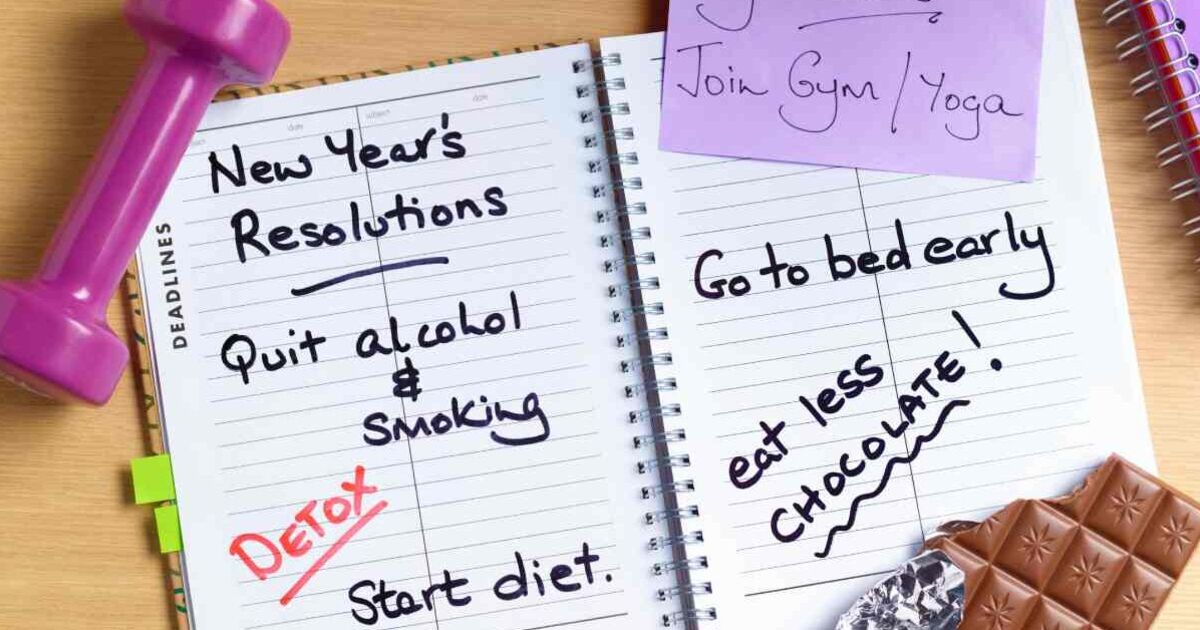 Join Gym / Yoga
date
subject
date
DEADLINES
New Year's
Resolutions
Quit alcohol
&
Smoking
DETOX
Start diet.
Go to bed early
eat less
CHOCOLATE!